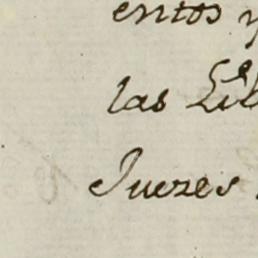 entos y
las Lib
Juezes